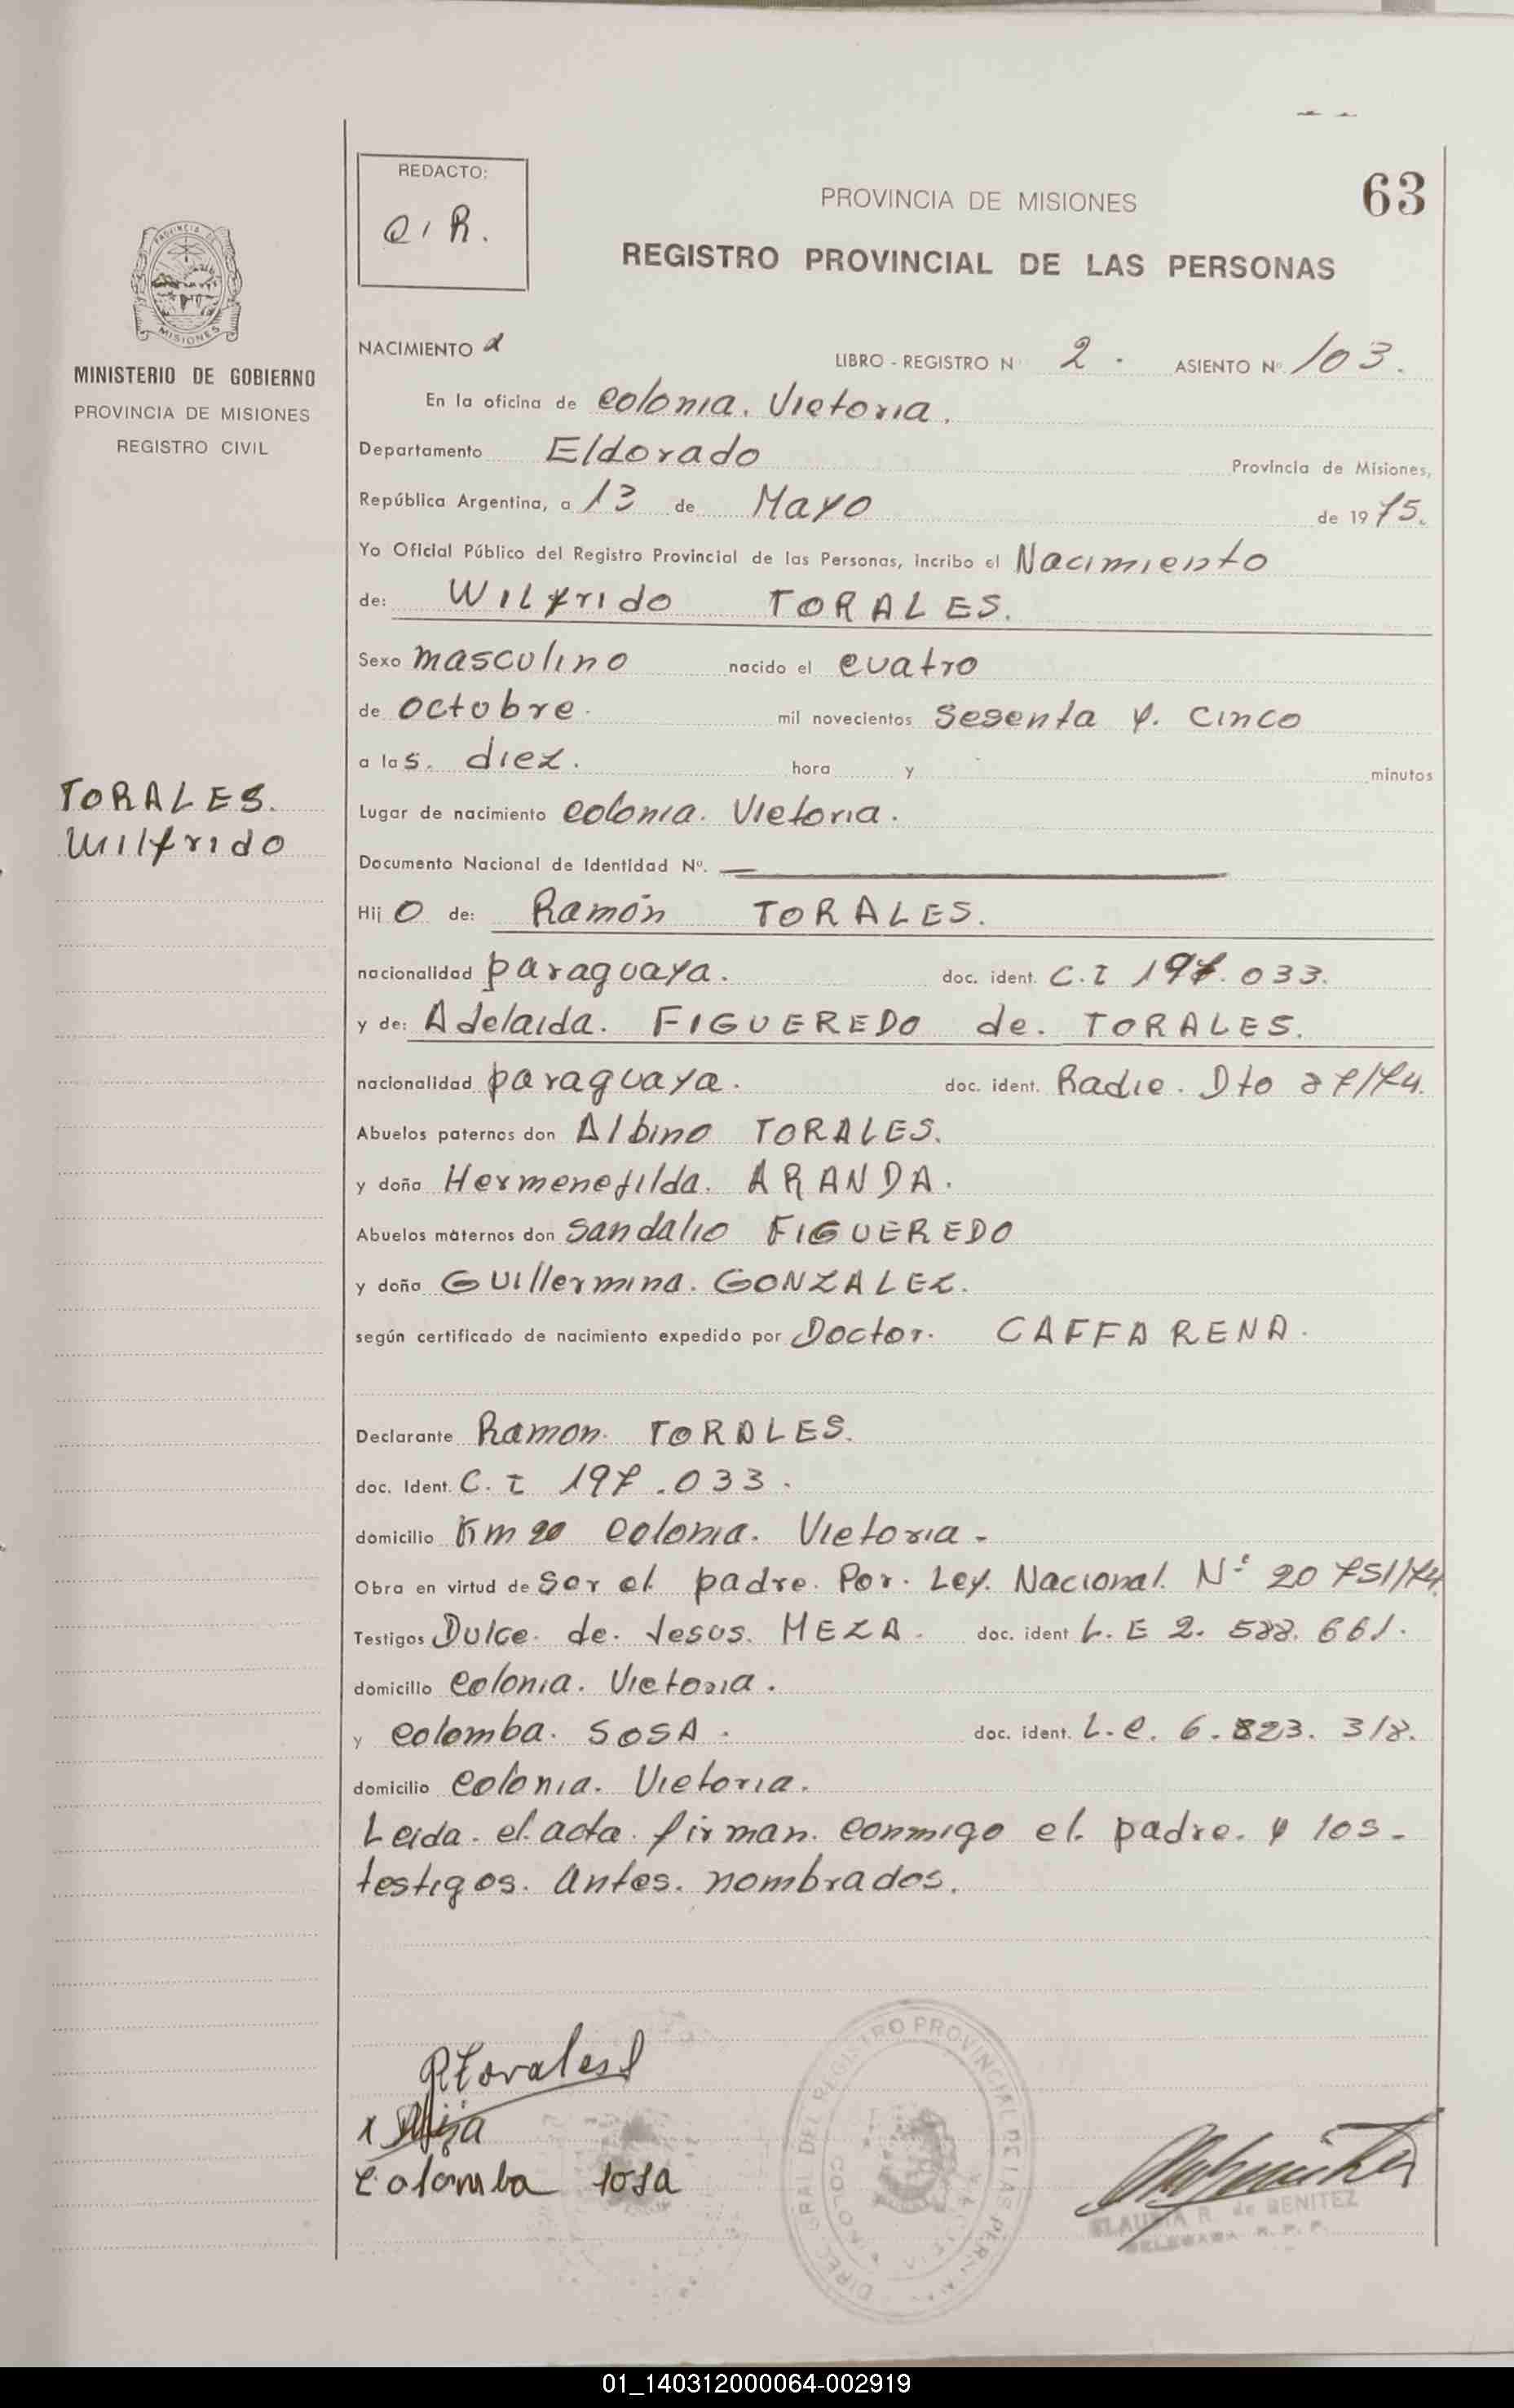 REDACTO:
Q.R.
PROVINCIA DE MISIONES
63
REGISTRO PROVINCIAL DE LAS PERSONAS
PROVINCIA DE
MISIONES
MINISTERIO DE GOBIERNO
PROVINCIA DE MISIONES
REGISTRO CIVIL
NACIMIENTO
LIBRO - REGISTRO Nº 2. ASIENTO Nº 103.
En la oficina de colonia. Victoria.
Departamento Eldorado Provincia de Misiones,
República Argentina, a 13 de Mayo de 1975.
Yo Oficial Público del Registro Provincial de las Personas, incribo el Nacimiento
de: Wilfrido TORALES.
Sexo masculino nacido el cuatro
de octubre. mil novecientos sesenta y. cinco
a las. diez. hora y minutos
TORALES.
Wilfrido
Lugar de nacimiento colonia. Victoria.
Documento Nacional de Identidad Nº.
Hijo de: Ramón TORALES.
nacionalidad paraguaya. doc. ident. C.I 197.033.
y de: Adelaida. FIGUEREDO de. TORALES.
nacionalidad paraguaya. doc. ident. Radic. Dto 87/74.
Abuelos paternos don Albino TORALES.
y doña Hermenejilda. ARANDA.
Abuelos maternos don Sandalio FIGUEREDO
y doña Guillermina. GONZALEZ.
según certificado de nacimiento expedido por Doctor. CAFFARENA.
Declarante Ramon. TORALES.
doc. Ident. C. I 197.033.
domicilio Km 20 colonia. Victoria.
Obra en virtud de ser el padre. Por. Ley. Nacional. Nº 20751/74.
Testigos Dulce. de. Jesus. MEZA. doc. ident L. E 2. 588. 661.
domicilio colonia. Victoria.
y colomba. SOSA. doc. ident. L. C. 6.823. 318.
domicilio colonia. Victoria.
Leida. el. acta. firman. conmigo el. padre. y los.
testigos. antes. nombrados.
RTorales
Colomba Sosa
REGISTRO PROVINCIAL DE LAS
de BENITEZ
01_140312000064-002919